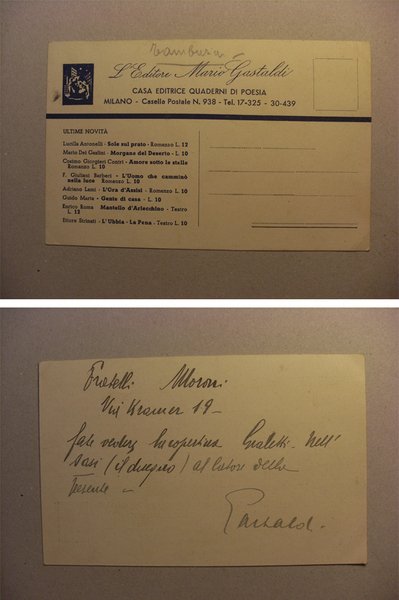 L'Editore Mario Gastaldi
CASA EDITRICE QUADERNI DI POESIA
MILANO - Casella Postale N. 938 - Tel. 17-325 - 30-439
ULTIME NOVITÀ
Lucilla Antonelli - Sole sul prato - Romanzo L. 12
Mario Dei Gaslini - Morgana del Deserto - L. 10
Cosimo Giorgieri Contri - Amore sotto le stelle
Romanzo L. 10
F. Giuliani Barberi - L'Uomo che camminò
nella luce Romanzo L. 10
Adriano Lami - L'Ora d'Assisi - Romanzo L. 10
Guido Marta - Gente di casa - L. 10
Enrico Roma - Mantello d'Arlecchino - Teatro
L. 12
Ettore Strinati - L'Ubbia - La Pena - Teatro L. 10
Fratelli Moroni
Via Kramer 19 -
fate vedere la copertina nell'
(il disegno) al latore della
presente -
Gastaldi